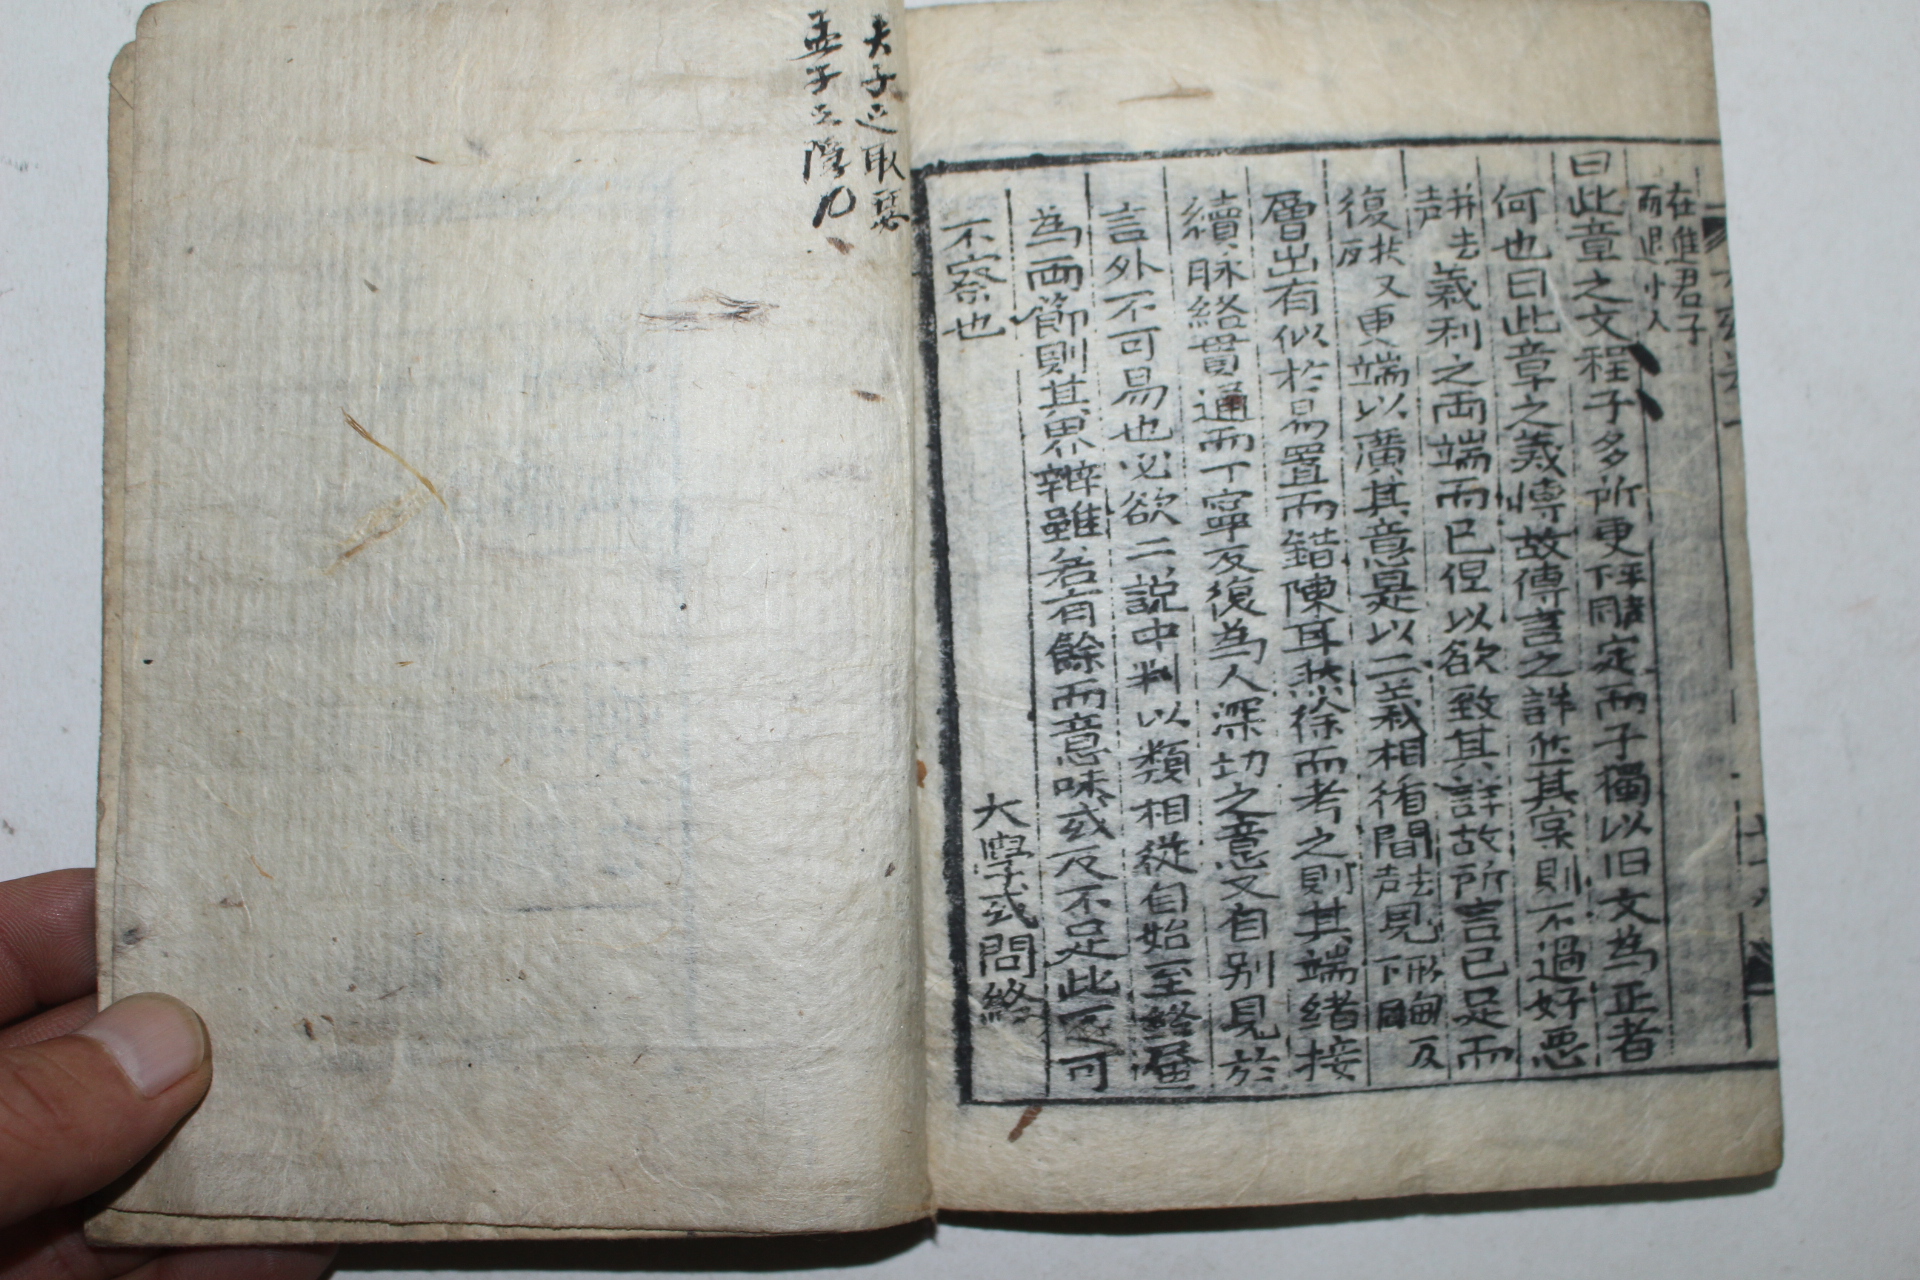 在進君子
而退小人
曰此章之文程子多所更平聲下同定而子獨以旧文為正者
何也曰此章之義博故傳言之詳然其宲則不過好悪
并去声義利之両端而已但以欲致其詳故所言已足而
復扶又反更端以廣其意是以二義相循間去声見形甸反下同
層出有似於易置而錯陳耳然徐而考之則其端緒接
續脉絡貫通而丁寧反復為人深切之意又自别見於
言外不可易也必欲二說中判以類相從自始至終畫
為両節則其界辨雖若有餘而意味或反不足此不可
不察也
大學或問終
夫子之取瑟
孟子之隱几